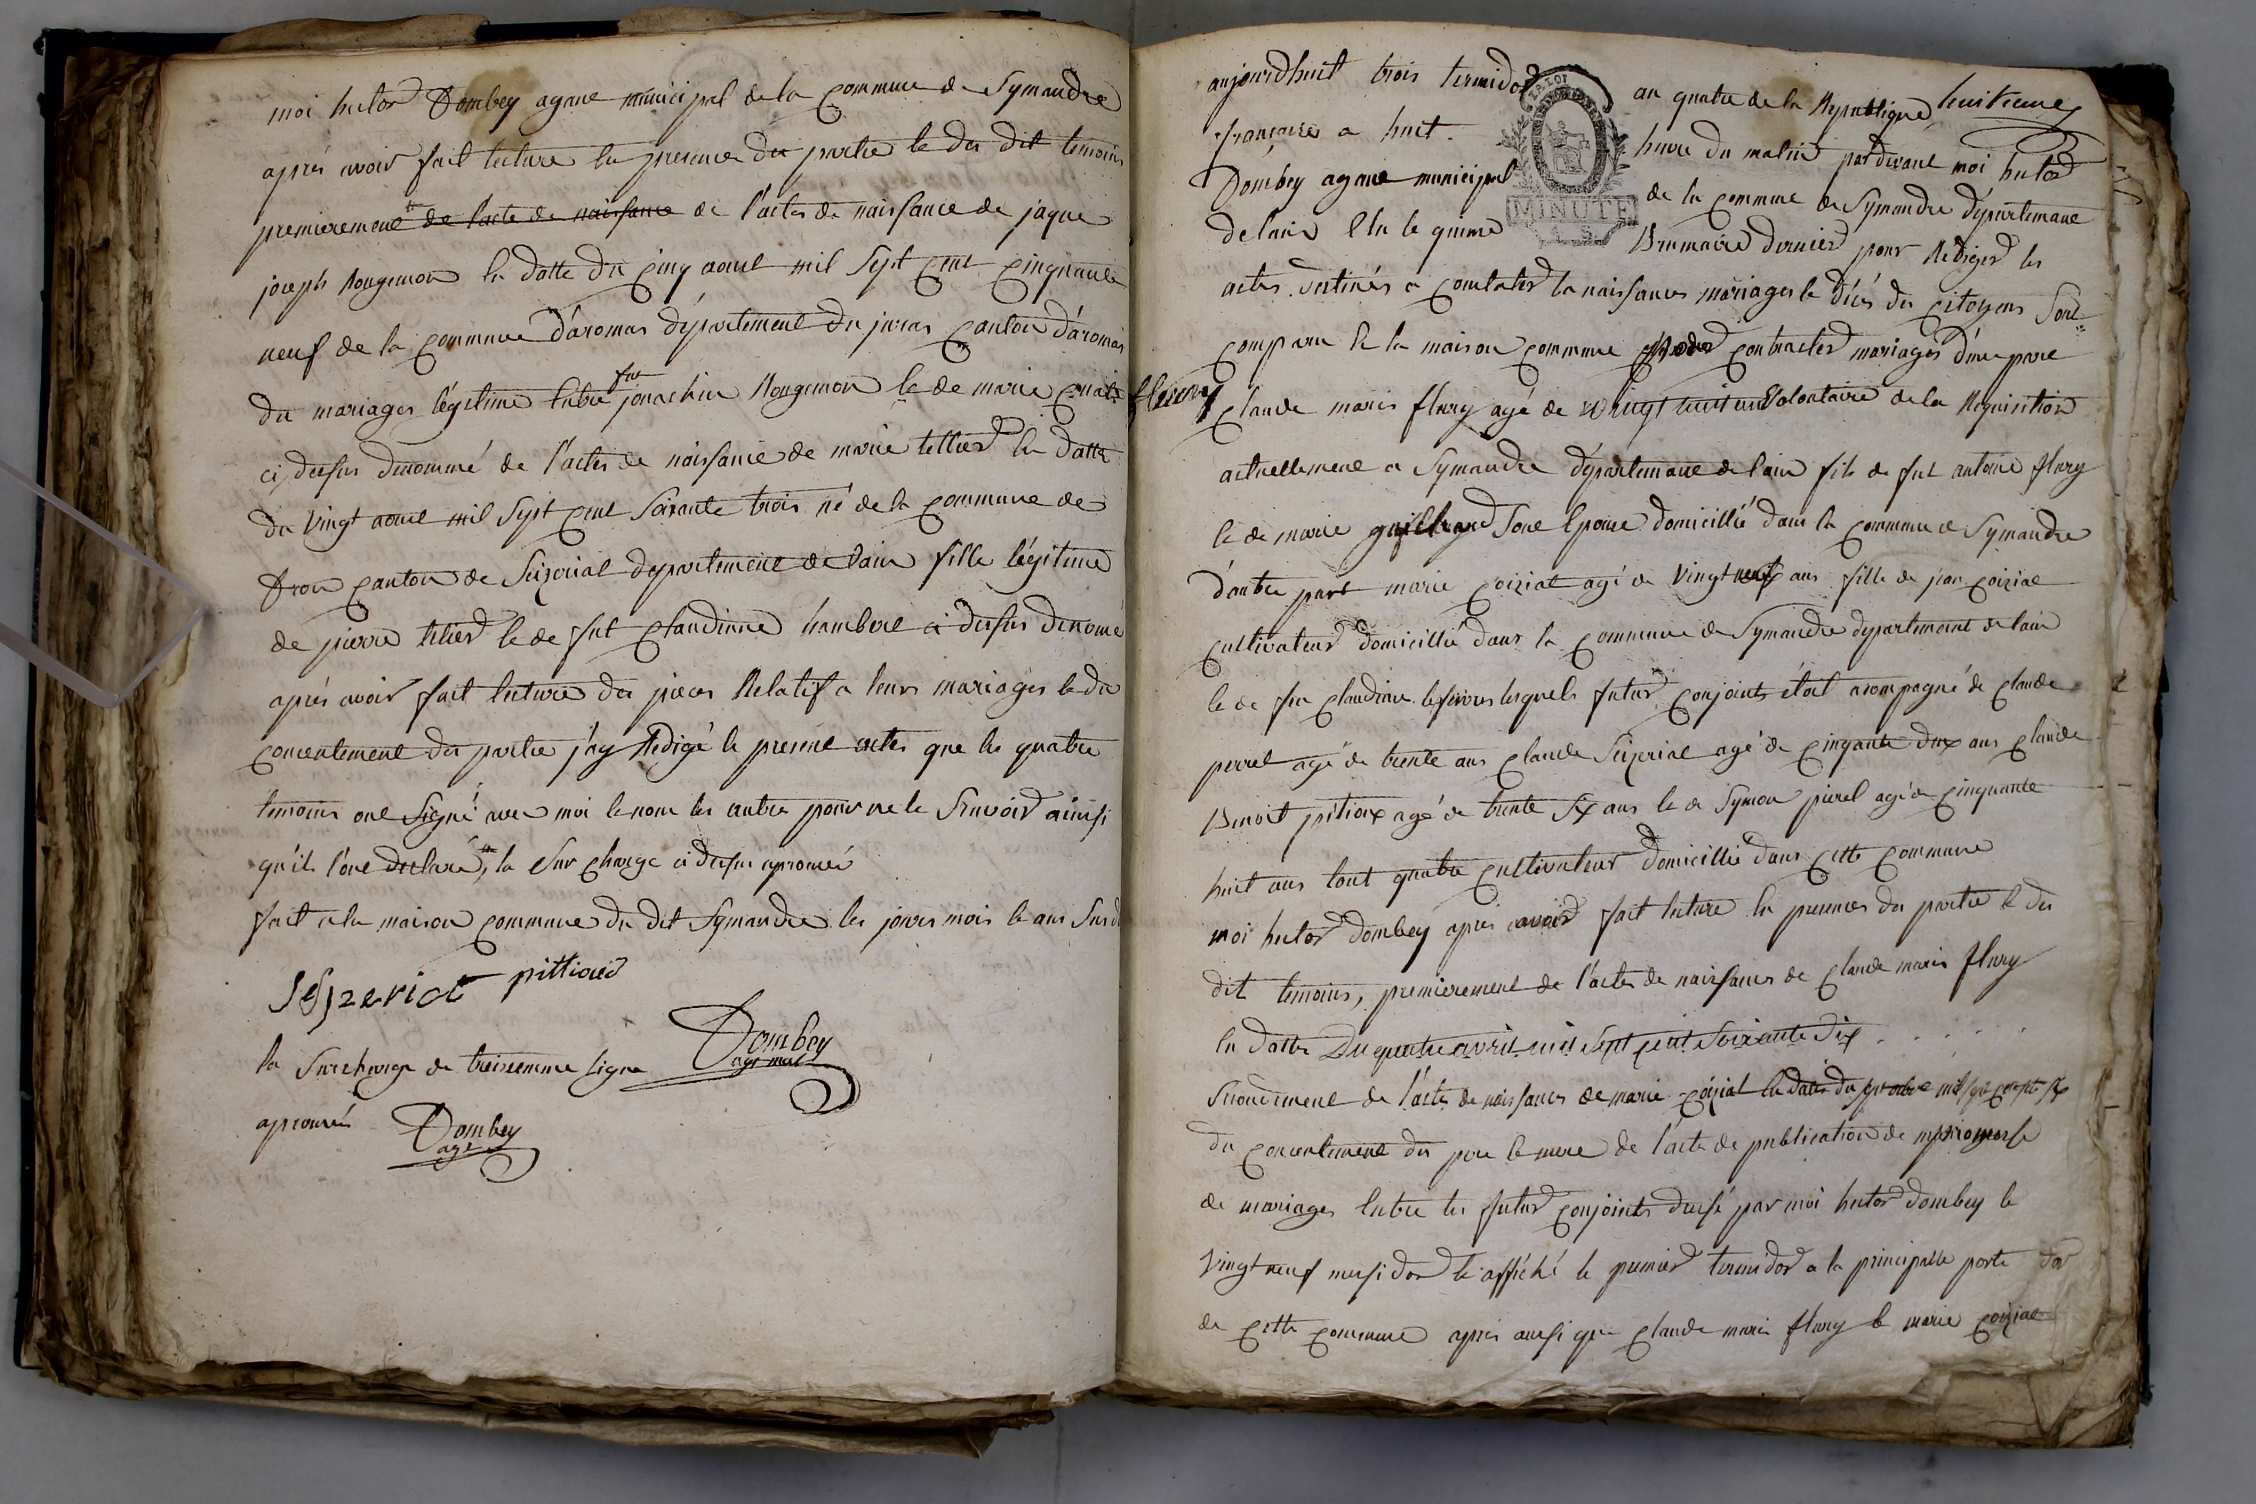 moi hector Dombey agane municipal de la commune de Symandre
aprés avoir fait lecture en presence des partie et des dit temoins
premierement de lacte de naissance de l'actes de naissance de jaque
joseph Rougemon en datte du cinq aout mil sept cent cinquante
neuf de la commune d'aromas département du juras canton d'aromas
du mariages légitime entre fut jouachin Rougemon et de marie
ci dessus denommé de l'actes de naissance de marie tellier en datte
du vingt aout mil sept cent soixante trois né de la commune de
Drou canton de Seizeriat departement de lain fille légitime
de pierre telier et de fut claudinne hambert ci dessus denomé
aprés avoir fait lecture des pieces Relatif a leurs mariages et du
concentement des partie j'ay Redigé le present actes que les quatre
temoins ont signé avec moi et non les autre pour ne le Savoir ainsi
qu'il l'ont declaré, la sur charge ci dessus aprouvée
fait a la maison commune du dit Symandre les jours mois et ans Susd
Seyzeriat pittioud
Dombey
agt mal
la surcharge de troisiemme ligne
aprouvés Dombey
agt
aujourdhuit trois termidor an quatre de la Republique huitieme
françaises a huit heure du matin pardevant moi hector
LA LOI
MINUTE
Dombey agane municipal de la commune de Symandre départemant
de lain Elu le quinze Brumaire dernier pour Rediger les
actes destinés a constater la naissances mariages et décés des citoyens sont
comparu en la maison commune contracter mariages d'une part
fleury
Claude maris flury agé de vingt ans volontaire de la Requisition
actuellement a Symandre départemant de lain fils de fut antoine flury
et de marie guillegrand sont epouse domicillié dans la commune Symandre
d'autre part marie coiziat agé de vingt neuf ans fille de jean coiziat
cultivateur domicillié dans la commune de Symandre departement de lain
et de fue claudinne lesquels futur conjoints étoit acompagné de claude
perret agé de trente ans claude Seizeriat agé de cinqante deux ans claude
Benoit pitioux agé de trente six ans et de Symon pirel agé de cinquante
huit ans tout quatre cultivateur domicillié dans cette commune
moi hector dombey apres avoir fait lecture en presences des partie et des
dit temoins, premierement de l'actes de naissances de claude maris flury
en datte Du quatre avril mil sept cent soixante dix . . . . .
Secondement de l'acte de naissances de marie coiziat en date du
du concentement des pere et mere de l'acte de publication de
de mariages entre les futur conjoints dressé par moi hector dombey le
vingt neuf messidor et affiché le premier termidor a la principalle porte
de cette commune apres aussi que claude maris flury et marie coiziat